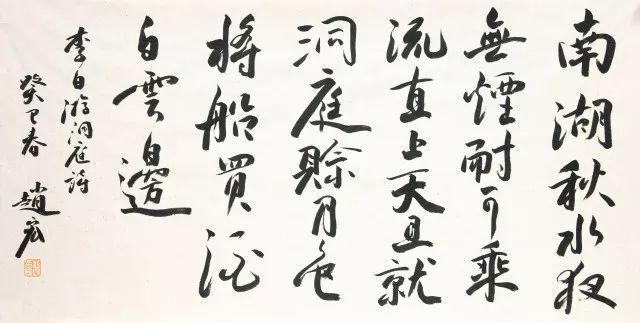 南湖秋水夜
無煙耐可乘
流直上天且就
洞庭賒月色
將船買酒
白雲邊
李白游洞庭詩
癸巳春 趙宏